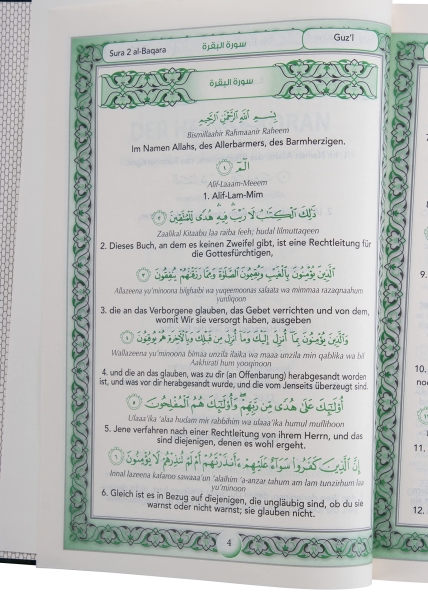 Sura 2 al-Baqara
سورة البقرة
Guz'I
سورة البقرة
بِسْمِ اللَّهِ الرَّحْمَٰنِ الرَّحِيمِ
Bismillaahir Rahmaanir Raheem
Im Namen Allahs, des Allerbarmers, des Barmherzigen.
الٓمٓ ﴿١﴾
Alif-Laaam-Meeem
1. Alif-Lam-Mim
ذَٰلِكَ الْكِتَابُ لَا رَيْبَ ۛ فِيهِ ۛ هُدًى لِّلْمُتَّقِينَ ﴿٢﴾
Zaalikal Kitaabu laa raiba feeh; hudal lilmuttaqeen
2. Dieses Buch, an dem es keinen Zweifel gibt, ist eine Rechtleitung für
die Gottesfürchtigen,
الَّذِينَ يُؤْمِنُونَ بِالْغَيْبِ وَيُقِيمُونَ الصَّلَاةَ وَمِمَّا رَزَقْنَاهُمْ يُنفِقُونَ ﴿٣﴾
Allazeena yu'minoona bilghaibi wa yuqeemoonas salaata wa mimmaa razaqnaahum
yunfiqoon
3. die an das Verborgene glauben, das Gebet verrichten und von dem,
womit Wir sie versorgt haben, ausgeben
وَالَّذِينَ يُؤْمِنُونَ بِمَا أُنزِلَ إِلَيْكَ وَمَا أُنزِلَ مِن قَبْلِكَ وَبِالْآخِرَةِ هُمْ يُوقِنُونَ ﴿٤﴾
Wallazeena yu'minoona bimaa unzila ilaika wa maaa unzila min qablika wa bil
Aakhirati hum yooqinoon
4. und die an das glauben, was zu dir (an Offenbarung) herabgesandt worden
ist, und was vor dir herabgesandt wurde, und die vom Jenseits überzeugt sind.
أُولَٰئِكَ عَلَىٰ هُدًى مِّن رَّبِّهِمْ ۖ وَأُولَٰئِكَ هُمُ الْمُفْلِحُونَ ﴿٥﴾
Ulaaa'ika 'alaa hudam mir rabbihim wa ulaaa'ika humul muflihoon
5. Jene verfahren nach einer Rechtleitung von ihrem Herrn, und das
sind diejenigen, denen es wohl ergeht.
إِنَّ الَّذِينَ كَفَرُوا سَوَاءٌ عَلَيْهِمْ أَأَنذَرْتَهُمْ أَمْ لَمْ تُنذِرْهُمْ لَا يُؤْمِنُونَ ﴿٦﴾
Innal lazeena kafaroo sawaaa'un 'alaihim 'a-anzar tahum am lam tunzirhum laa
yu'minoon
6. Gleich ist es in Bezug auf diejenigen, die ungläubig sind, ob du sie
warnst oder nicht warnst; sie glauben nicht.
4
9.
10.
11.
12.